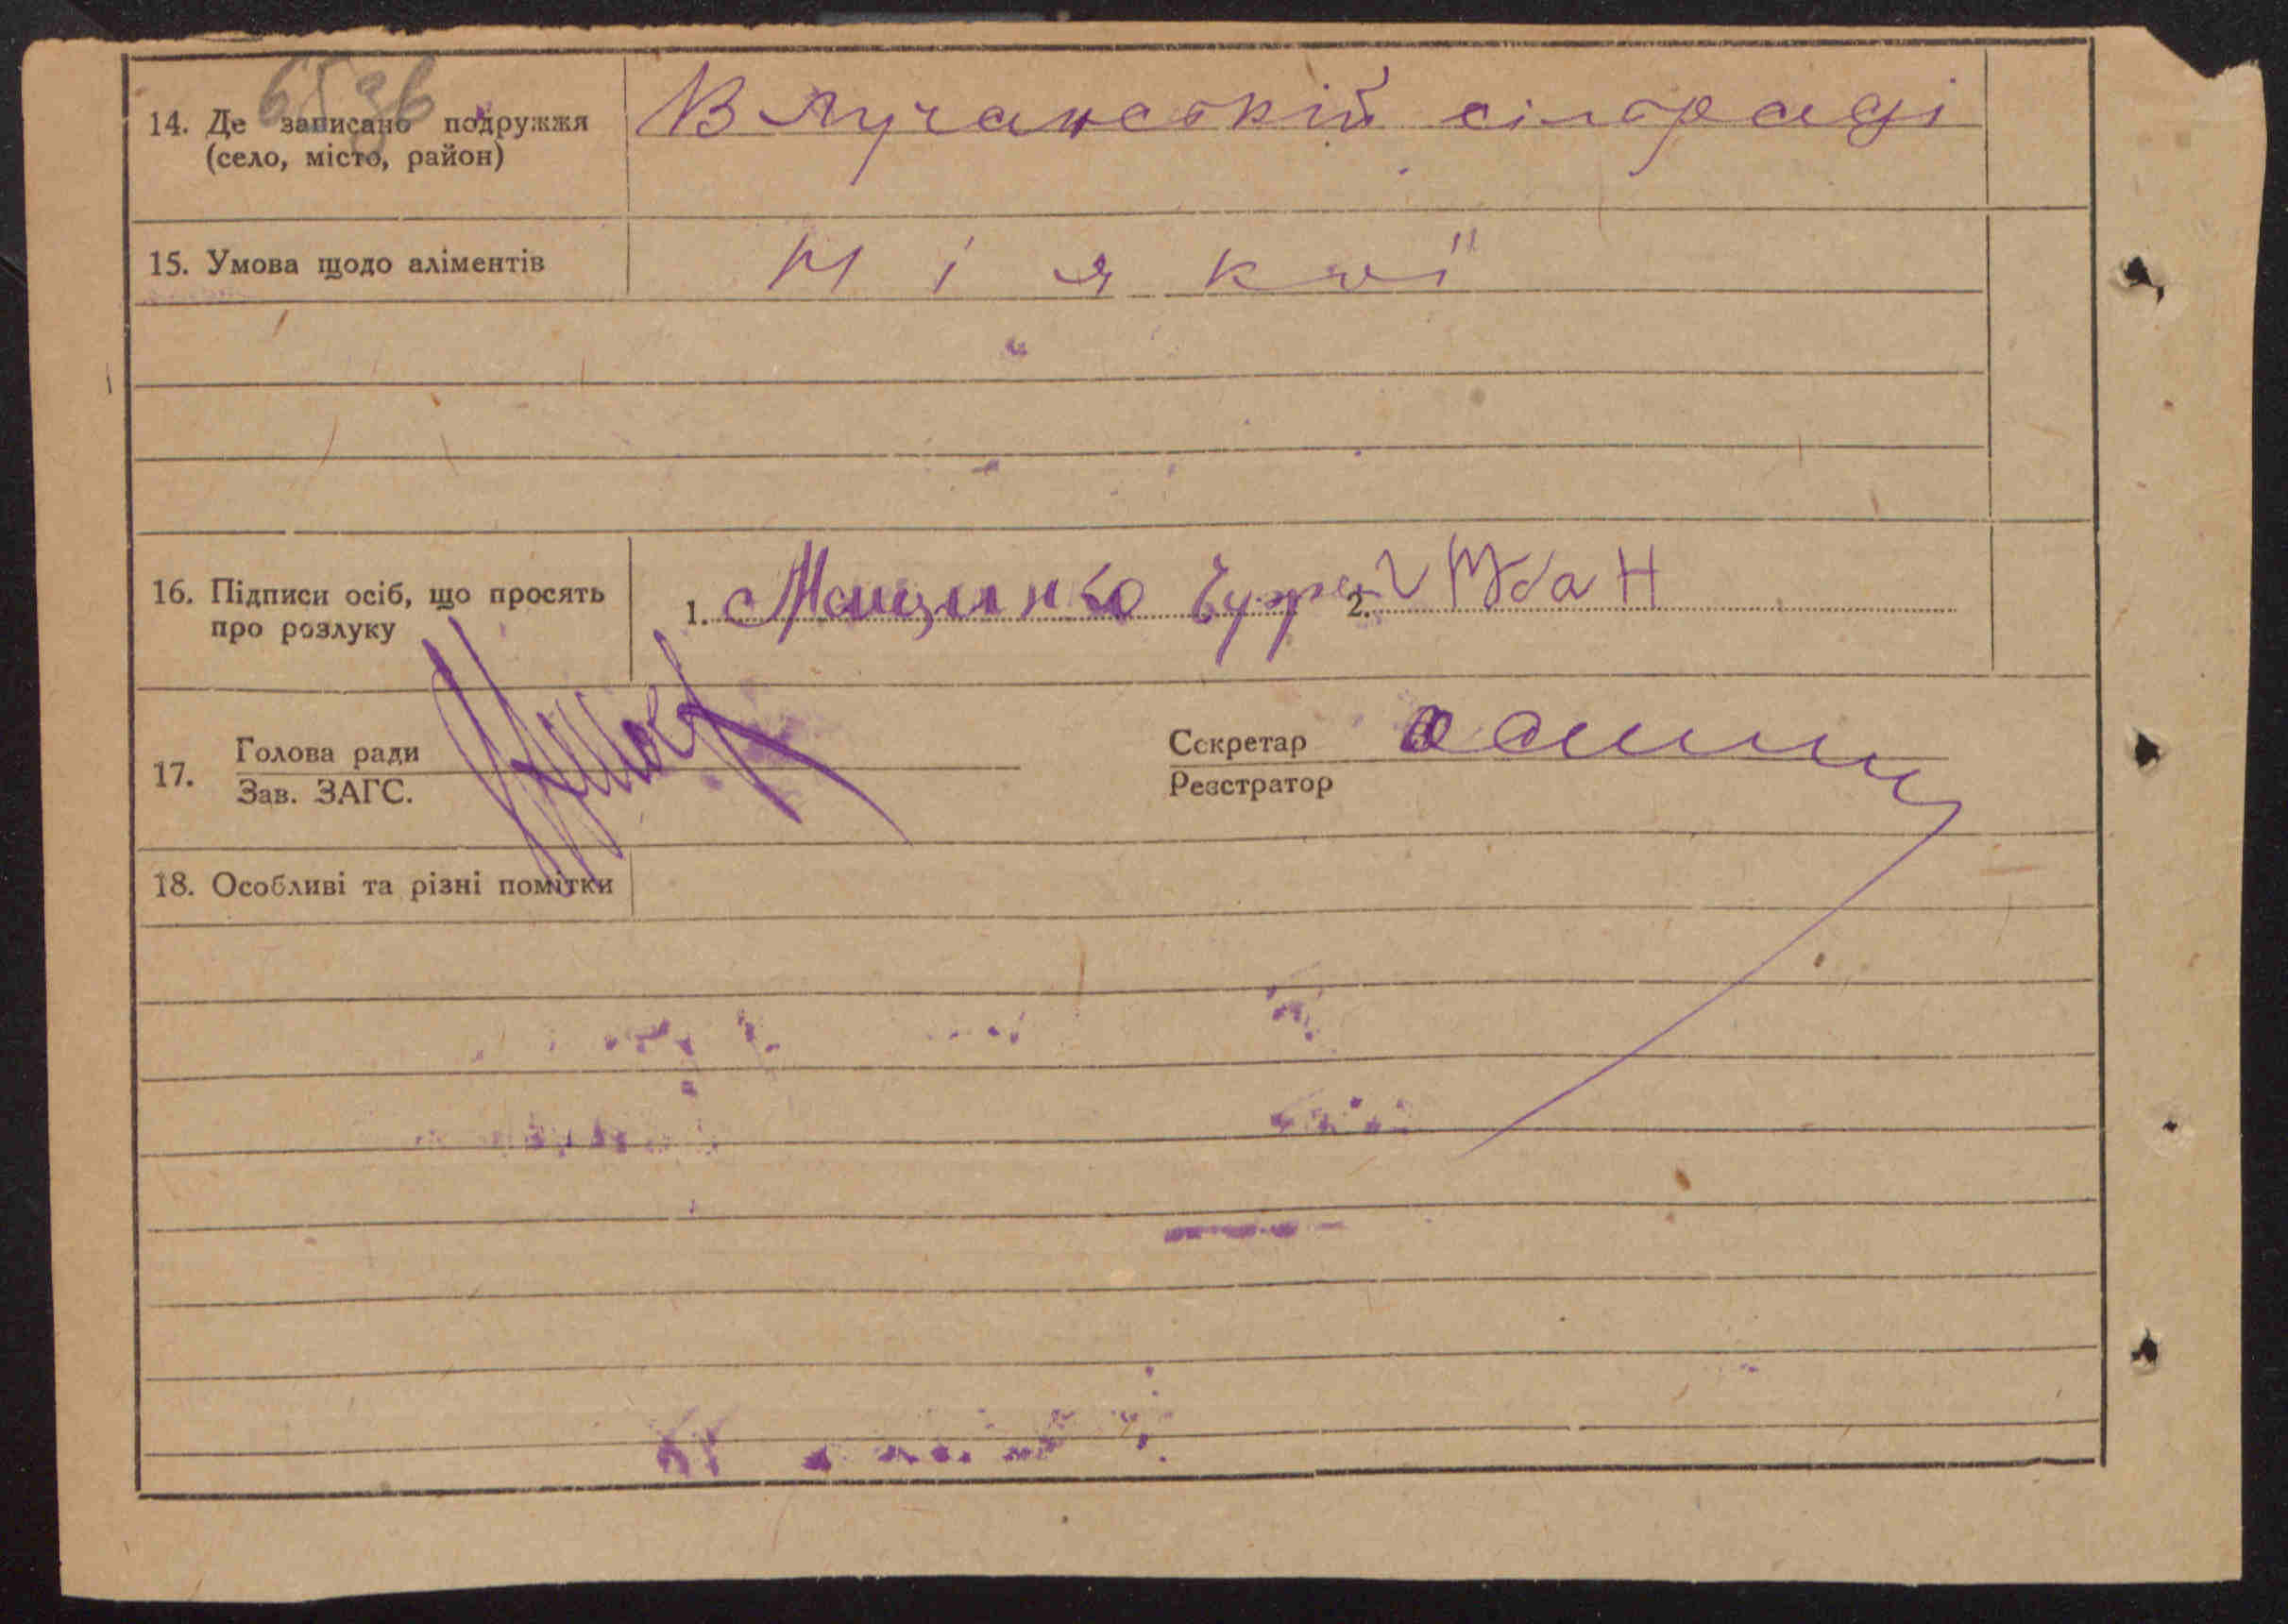 14. Де записано подружжя
(село, місто, район)
В Лучанській сільраді
15. Умова щодо аліментів
Ніякої
16. Підписи осіб, що просять
про розлуку
1.
2.
17. Голова ради
Зав. ЗАГС.
Секретар
Реєстратор
18. Особливі та різні помітки